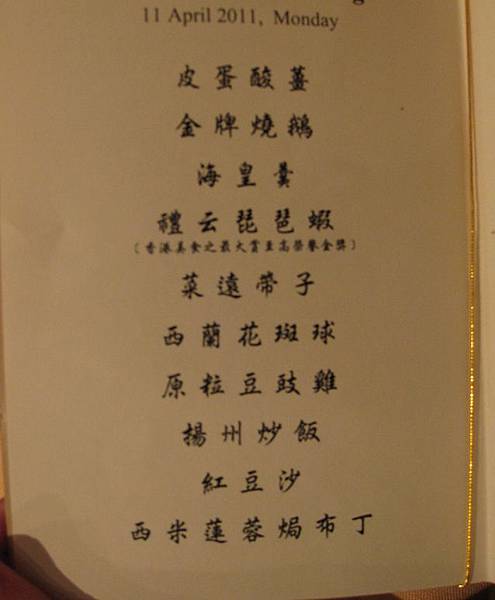 11 April 2011, Monday
皮蛋酸薑
金牌燒鵝
海皇羹
禮云琵琶蝦
(香港美食之最大賞至高榮譽金獎)
菜遠帶子
西蘭花斑球
原粒豆豉雞
揚州炒飯
紅豆沙
西米蓮蓉焗布丁